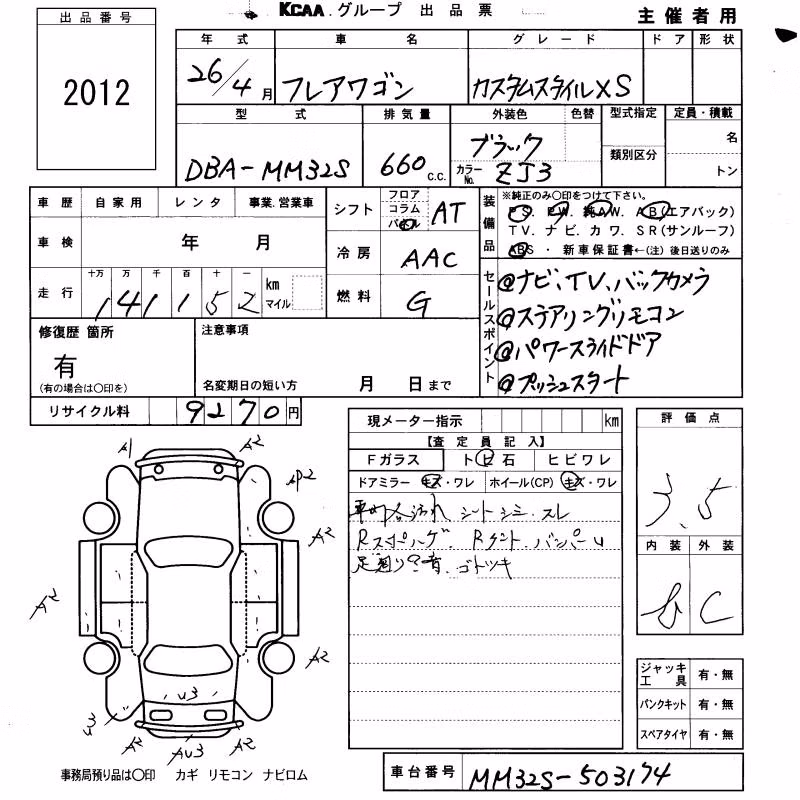 KCAA.グループ 出品票
主催者用
出品番号
2012
年式 車名 グレード ドア 形状
26/4月 フレアワゴン カスタムスタイルXS
型式 排気量 外装色 色替 型式指定 定員・積載
DBA-MM32S 660 c.c. ブラック 名
カラーNo. ZJ3 類別区分 トン
車歴 自家用 レンタ 事業.営業車
車検 年 月
走行 十万 万 千 百 十 一
141152 km マイル
シフト フロア コラム パネル AT
冷房 AAC
燃料 G
装備品
※純正のみ○印をつけて下さい。
PS. PW. 純AW. AB(エアバック)
TV. ナビ. カワ. SR(サンルーフ)
ABS・新車保証書←(注)後日送りのみ
セールスポイント
@ナビ、TV、バックカメラ
@ステアリングリモコン
@パワースライドドア
@プッシュスタート
修復歴 箇所
有
(有の場合は○印を)
注意事項
名変期日の短い方 月 日まで
リサイクル料 9270円
現メーター指示 km
【査定員記入】
Fガラス トビ石 ヒビワレ
ドアミラー キズ・ワレ ホイール(CP) キズ・ワレ
汚れ シートシミ.スレ
バンパーU
ゴトツキ
評価点
3.5
内装 外装
b C
ジャッキ工具 有・無
パンクキット 有・無
スペアタイヤ 有・無
A1 A2
A2
A2
A2
A2
U3
U3
A2 AU3 A2
事務局預り品は○印 カギ リモコン ナビロム
車台番号 MM32S-503174